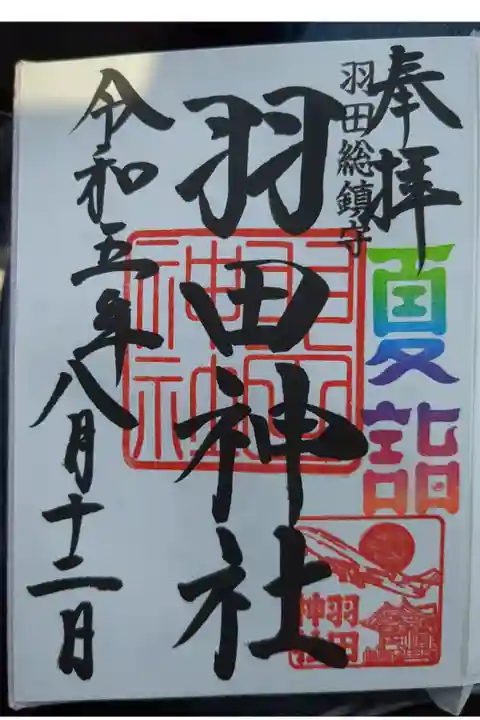 奉拝
夏詣
羽田総鎮守
羽田神社
羽田
神社
羽田
神社
令和五年八月十二日